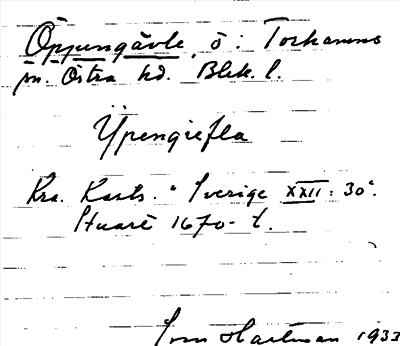 Öppengävle, ö: Torhamns
sn. Östra hd. Blek. l.
Ÿpengiefla
Kra. Kartv. "Sverige XXII: 30".
Stuart 1670-t.
Hartman 1933